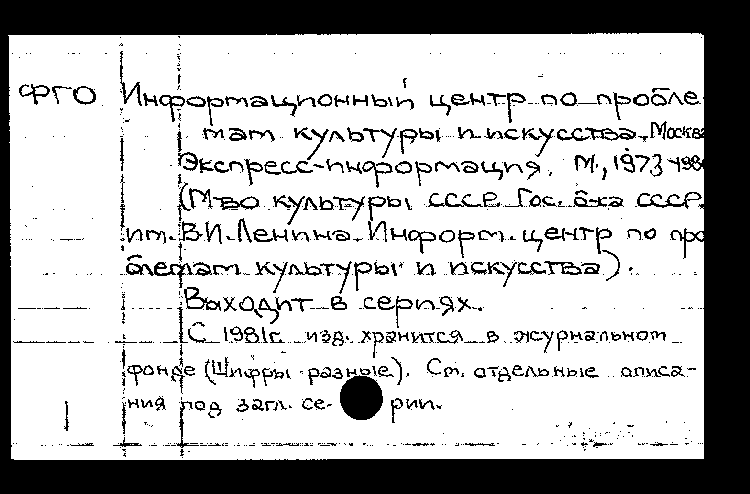 ФГО Информационный центр по пробле-
мам культуры и искусства. Москва
Экспресс-информация. М., 1973-1980
(М-во культуры СССР. Гос. б-ка СССР
им. В.И. Ленина. Информ. центр по про
блемам культуры и искусства).
Выходит в сериях.
С 1981г. изд. хранится в журнальном
фонде (Шифры разные). См. отдельные описа-
ния под загл. се- рии.